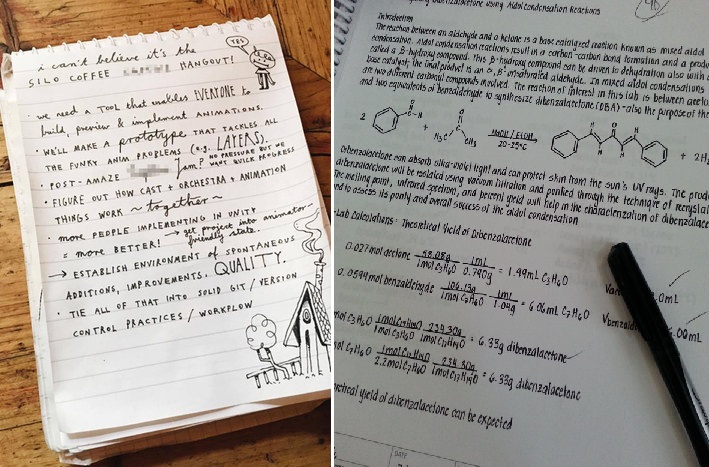 i can't believe it's the
SILO COFFEE HANGOUT!
YES
· we need a TOOL that enables EVERYONE to
build, preview & implement ANIMATIONS.
· WE'LL MAKE A prototype THAT TACKLES ALL
THE FUNKY ANIM PROBLEMS (e.g. LAYERS).
· POST-AMAZE Jam? NO PRESSURE BUT WE
WANT QUICK PROGRESS
· FIGURE OUT HOW CAST + ORCHESTRA + ANIMATION
THINGS WORK ~together~
· more PEOPLE IMPLEMENTING IN UNITY
= more BETTER! → get project into animator-
friendly state.
→ ESTABLISH ENVIRONMENT OF SPONTANEOUS
ADDITIONS, IMPROVEMENTS, QUALITY.
· TIE ALL OF THAT INTO SOLID GIT / VERSION
CONTROL PRACTICES / WORKFLOW
dibenzalacetone using Aldol Condensation Reactions
Introduction
The reaction between an aldehyde and a ketone is a base catalyzed reaction known as mixed aldol
condensation. Aldol condensation reactions result in a carbon-carbon bond formation and a
called a β-hydroxy compound. This β-hydroxy compound can be driven to dehydration also with
base catalyst; the final product is an α, β-unsaturated aldehyde. In mixed aldol condensations
are two different carbonyl compounds involved. The reaction of interest in this lab is between
and two equivalents of benzaldehyde to synthesize dibenzalacetone (DBA) - also the purpose of the
2
+
H3C
CH3
NaOH / EtOH
20-25°C
+ 2H
Dibenzalacetone can absorb ultra-violet light and can protect skin from the sun's UV rays. The
dibenzalacetone will be isolated using vacuum filtration and purified through the technique of
The melting point, infrared spectrum, and percent yield will help in the characterization of
to assess its purity and overall success of the aldol condensation
Lab Calculations: Theoretical Yield of Dibenzalacetone
0.027mol acetone 58.08g 1mL = 1.99mL C3H6O
1mol C3H6O 0.790g
0.0594mol benzaldehyde 106.13g 1mL = 6.06mL C7H6O
1mol C7H6O 1.04g
mol C3H6O 1mol C17H14O 234.30g = 6.33g dibenzalacetone
1mol C3H6O 1mol C17H14O
mol C7H6O 1mol C17H14O 234.30g = 6.33g dibenzalacetone
2.2mol C7H6O 1mol C17H14O
yield of dibenzalacetone can be expected
DATE